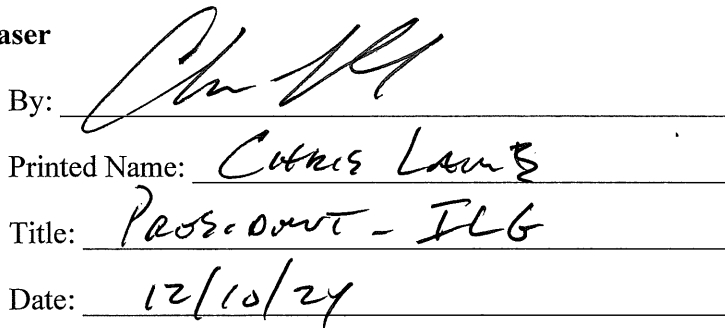 aser
By:
Printed Name: CHRIS
Title: PRESIDENT - ILG
Date: 12/10/24